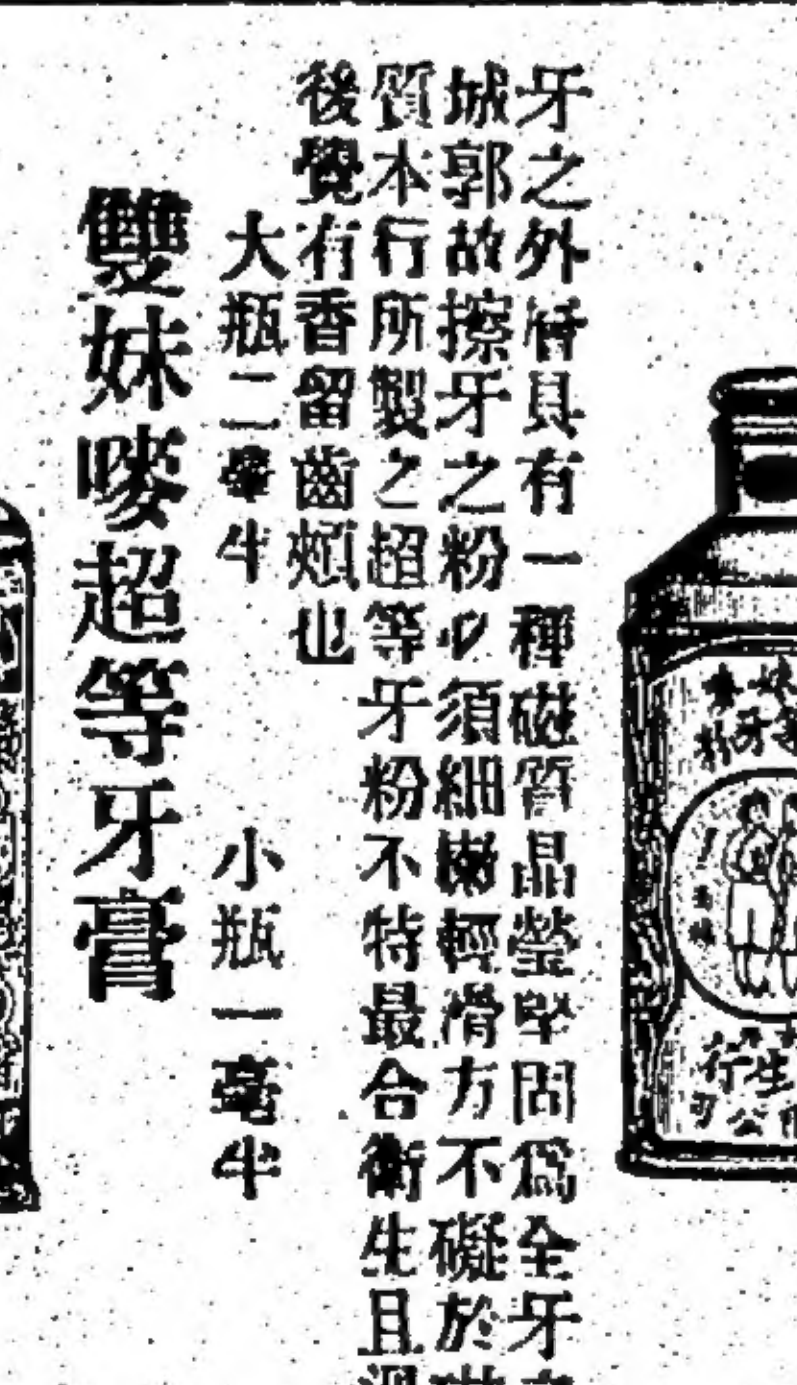 牙之外層具有一種磁質晶瑩堅固爲全牙
城郭故擦牙之粉必須細嫩輕滑方不礙於
質本行所製之超等牙粉不特最合衛生且
後覺有香留齒頰也
大瓶二毫半 小瓶一毫半
雙妹嘜超等牙膏